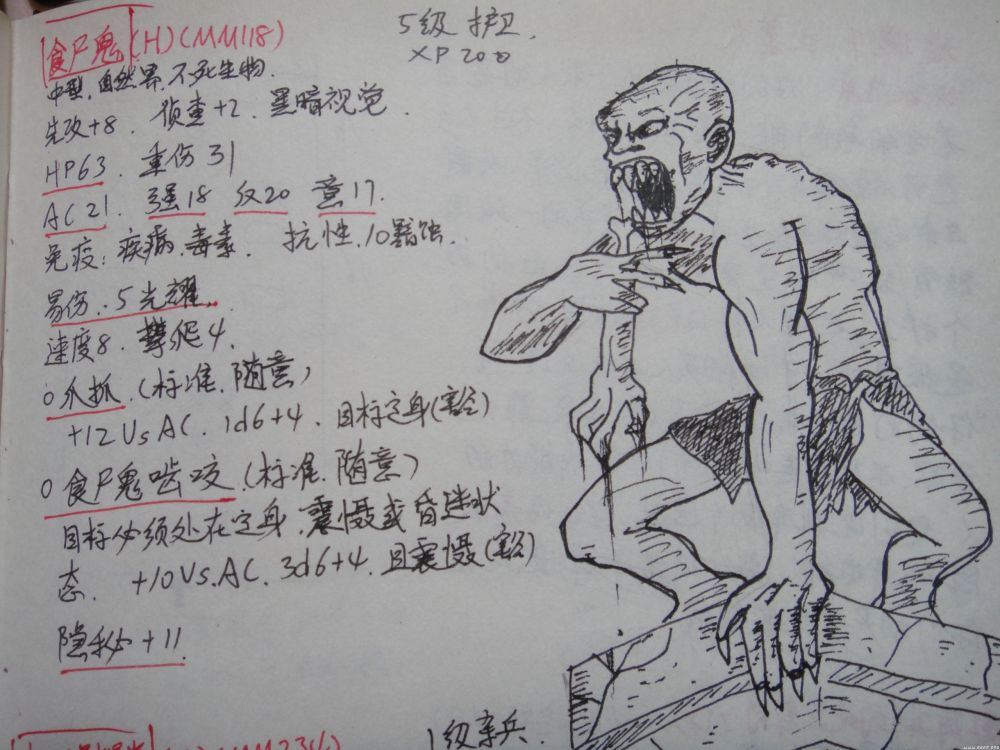 食尸鬼(H)(MM118)
5级 护卫
XP 200
中型,自然界,不死生物.
先攻+8. 侦查+2. 黑暗视觉.
HP63. 重伤 31
AC21. 强18 反20 意17.
免疫:疾病.毒素. 抗性.10黯蚀.
易伤.5光耀.
速度8. 攀爬4.
○爪抓.(标准.随意)
+12 Vs AC. 1d6+4. 目标定身(豁)
○食尸鬼啮咬.(标准.随意)
目标必须处在定身.震慑或昏迷状
态. +10 Vs. AC. 3d6+4. 且震慑(豁)
隐秘+11
1级杂兵.